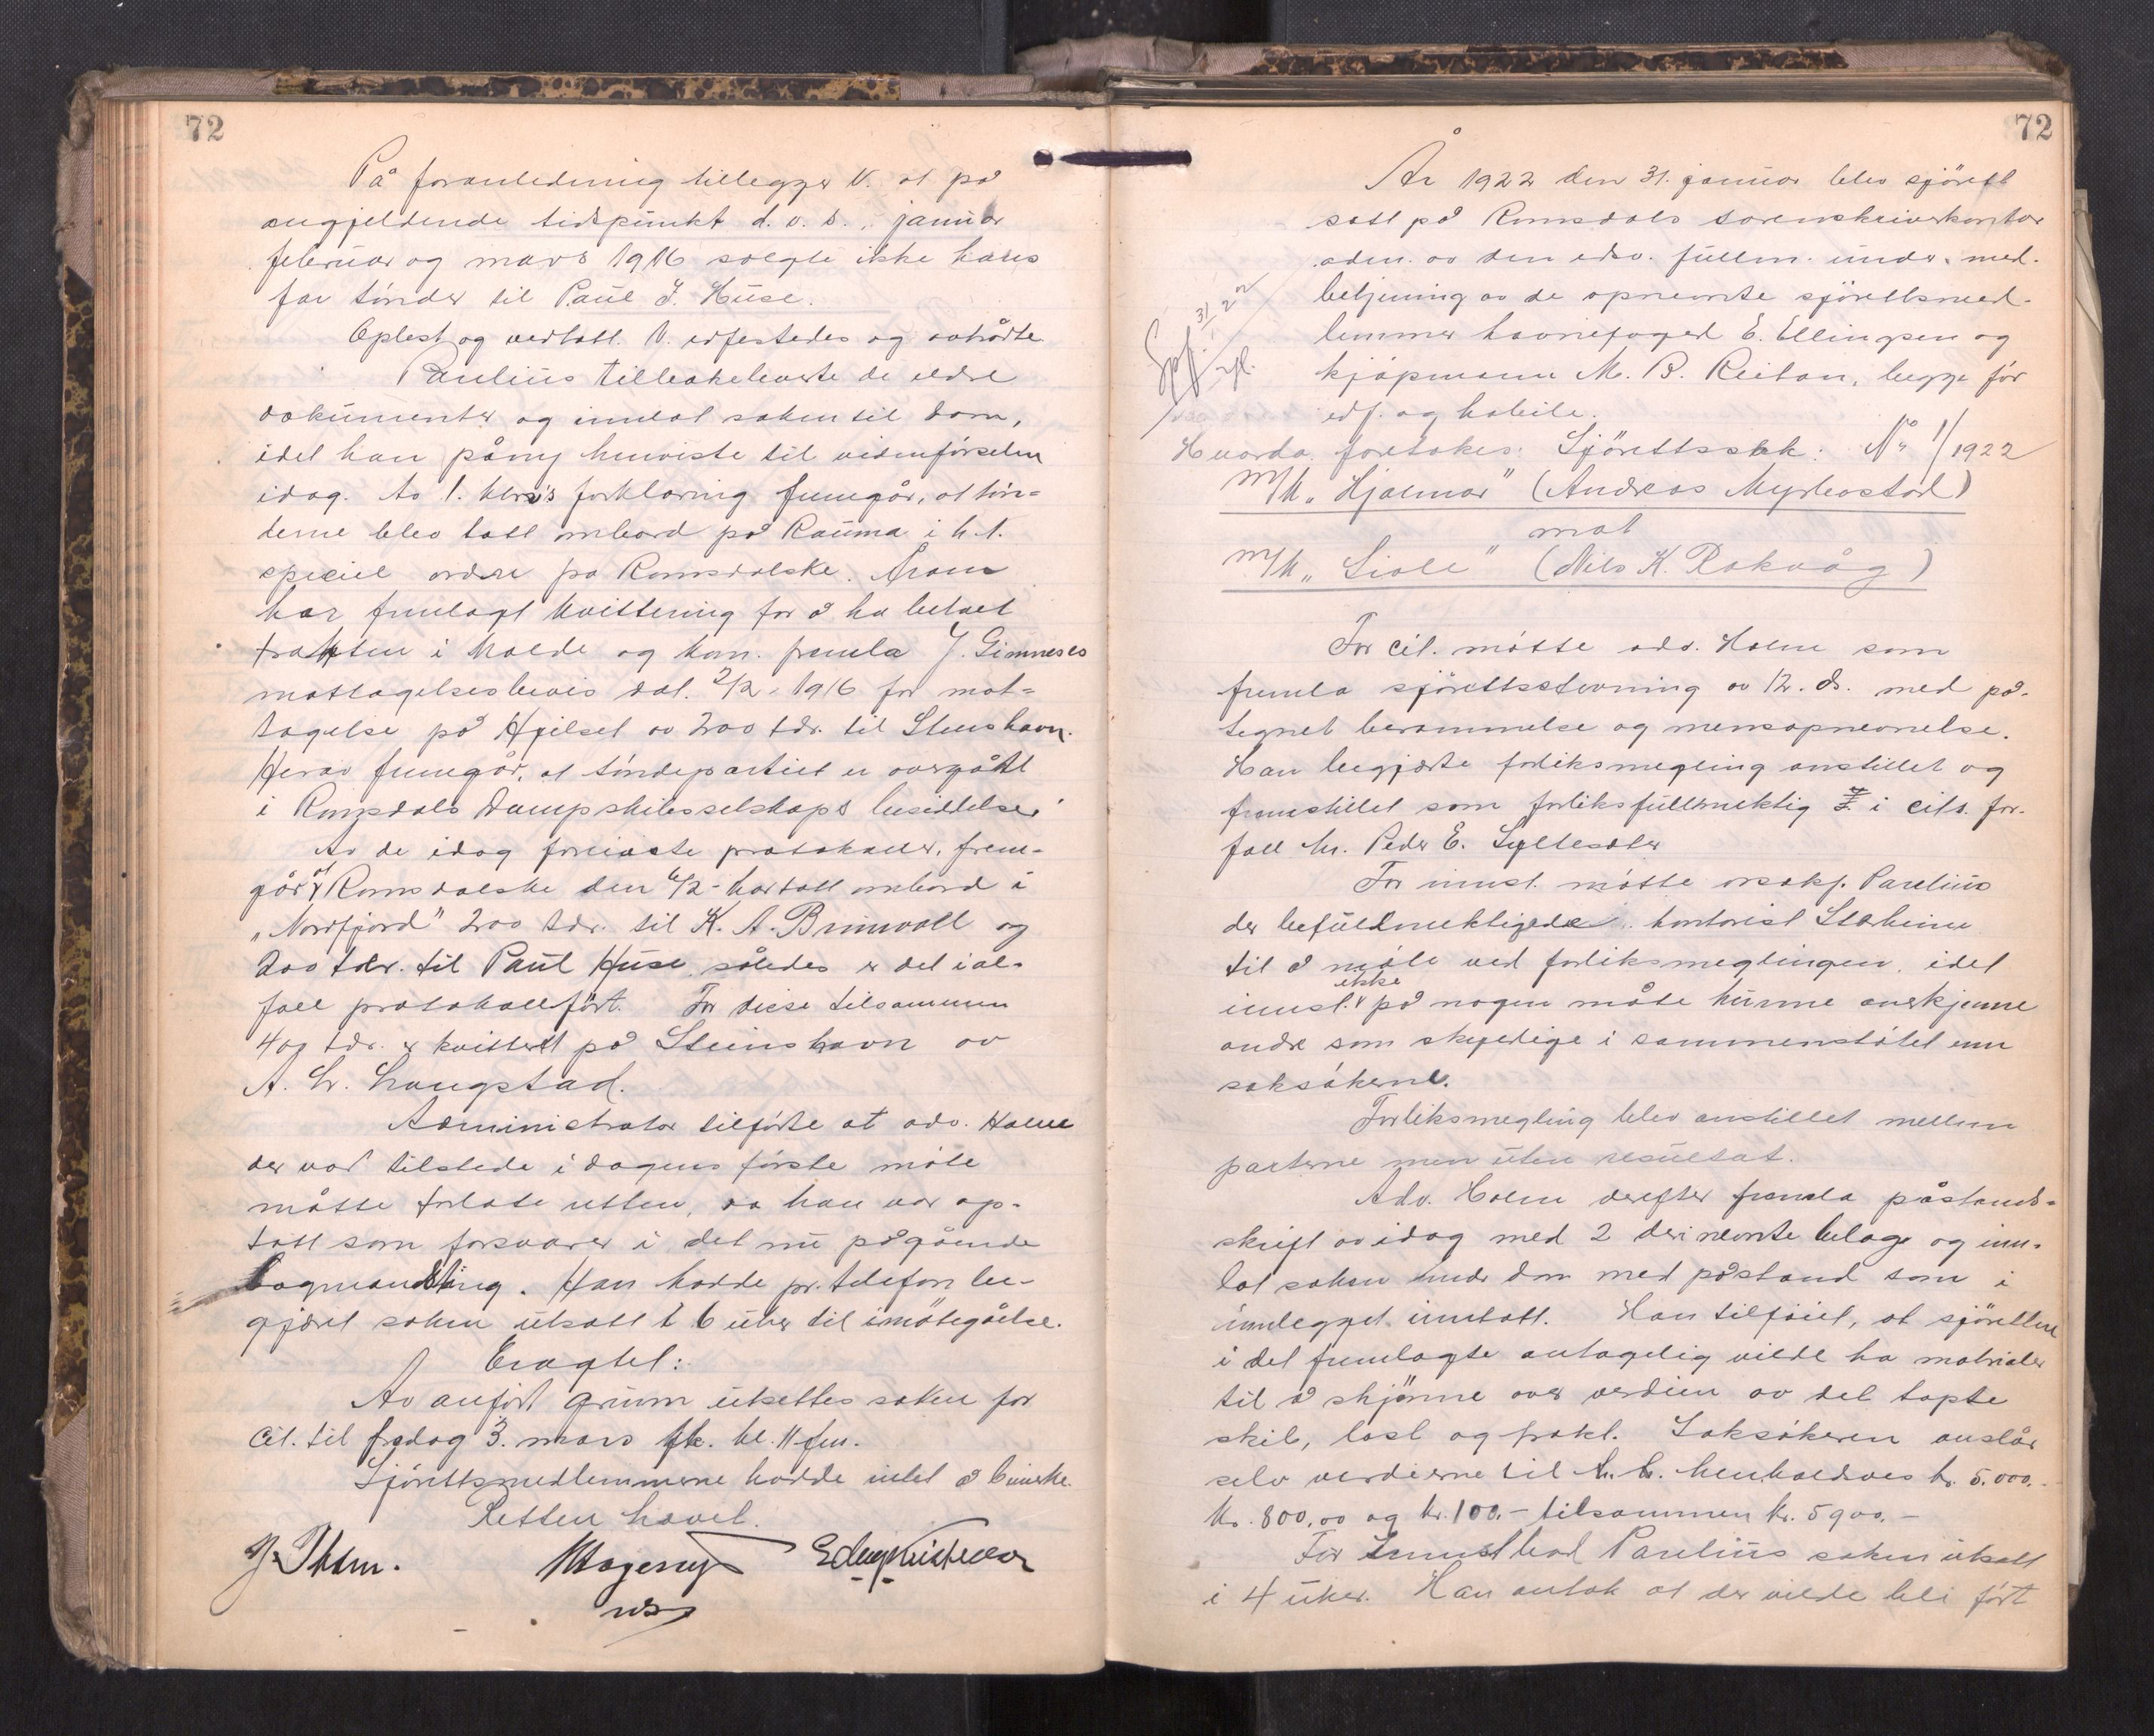 72
På foranledning tillegger V. at på
angjeldende tidspunkt d. v. s. januar
februar og mars 1916 solgte ikke hans
far tönder til Paul J. Huse.
Oplest og vedtatt. V. edfestedes og avtrådte.
Parelius tilbakeleverte de eldre
dokumenter og innlot saken til dom,
idet han påny henviste til vidneförselen
idag. Av 1. vidnes forklaring fremgår, at tön-
derne blev tatt ombord på Rauma i h. t.
speciel ordre fra Romsdalske.
har fremlagt kvittering for å ha betalt
frakten i Molde og kom. fremla J. Gimneses
mottagelsesbevis dat. 2/2 1916 for mot-
tagelse på Hjelset av 200 tdr. til Steinshavn.
Herav fremgår, at töndepartiet er overgått
i Romsdals Dampskibsselskaps besiddelse.
Av de idag foreviste protokoller, frem-
går at Romsdalske den 6/2 har tatt ombord i
"Nordfjord" 200 tdr. til K. A. Brinvoll og
200 tdr. til Paul Huse, således er det ial-
fall protokollfört. For disse tilsammen
400 tdr. er kvittert på Steinshavn av
A. Hr. Haugstad.
Administrator tilförte at adv. Holm
der var tilstede i dagens förste möte
måtte forlate retten, da han var op-
tatt som forsvarer i det nu pågående
lagmandsting. Han hadde pr. telefon be-
gjært saken utsatt i 6 uker til imötegåelse.
Eragtet:
Av anfört grunn utsettes saken for
Cit. til fredag 3. mars fk. kl. 11 fm.
Sjörettsmedlemmerne hadde intet å bemerke.
Retten hævet.
72
År 1922 den 31. januar blev sjörett
satt på Romsdals sorenskriverkontor
adm. av den edsv. fullm. under med-
betjening av de opnevnte sjörettsmed-
lemmer havnefoged E. Ellingsen og
kjöpmann M. B. Reitan, begge för
edf. og habile.
Hvorda foretokes: Sjörettssak: No 1/1922
M/k "Hjalmar" (Andreas Myrbostad)
mot
M/k "Liale" (Nils K. Rokvåg)
For cit. mötte adv. Holm som
fremla sjörettsstevning av 12. ds. med på-
tegnet berammelse og mensopnevnelse.
Han begjærte forliksmegling anstillet og
fremstillet som forliksfullmektig i cits. for-
fall hr. Peder E. Syltesæter
For innst. mötte orsakf. Parelius
der befullmektigede kontorist Starheim
til å möte ved forliksmeglingen, idet
innst. ikke på nogen måte kunne anerkjenne
andre som skyldige i sammenstötet enn
saksökerne.
Forliksmegling blev anstillet mellem
parterne men uten resultat.
Adv. Holm derefter fremla påstands-
skrift av idag med 2 deri nevnte bilage og inn-
lot saken under dom med påstand som i
innlegget inntatt. Han tilföiet, at sjöretten
i det fremlagte antagelig vilde ha matrialer
til å skjönne over verdien av det tapte
skib, last og frakt. Saksökeren anslår
selv verdierne til h. h. henholdsvis kr. 5.000.-
kr. 800,00 og kr. 100.- tilsammen kr. 5900.-
For Innst bad Parelius saken utsatt
i 4 uker. Han antok at der vilde bli fört